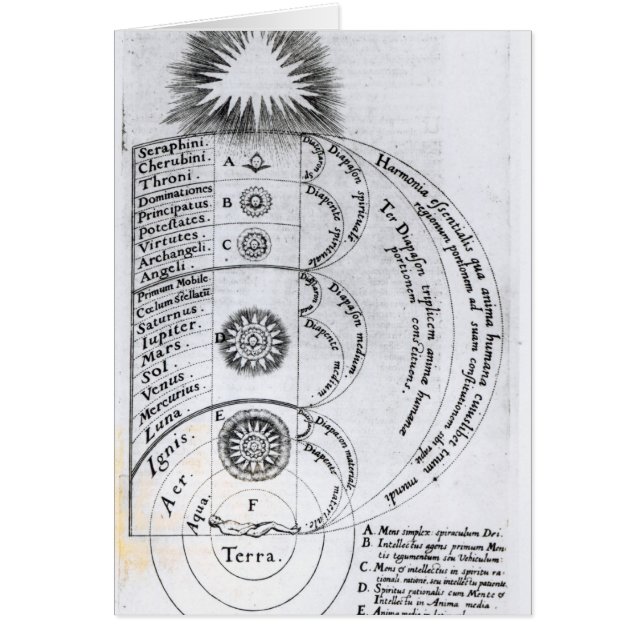 Seraphini.
Cherubini.
Throni.
Dominationes
Principatus.
Poteſtates.
Virtutes.
Archangeli.
Angeli.
Primum Mobile
Cœlum ſtellatū
Saturnus.
Iupiter.
Mars.
Sol.
Venus.
Mercurius
Luna.
Ignis.
Aer.
Aqua.
Terra.
A
B
C
D
E
F
Diapaſon spirituale.
Diapente spirituale
Diapaſon medium.
Diapente medium.
Diapason materiale
Diapente materiale.
Ter Diapaſon triplicem animæ humanæ
portionem conſtituens.
Harmonia eſſentialis qua anima humana cuiuſlibet trium mundi
regionum portionem ad suam conſtitutionem sibi rapit
A. Mens simplex spiraculum Dei.
B. Intellectus agens primum Men-
tis tegumentum seu Vehiculum.
C. Mens & intellectus in spiritu ra-
tionali ratione, seu intellectu patiente
D. Spiritus rationalis cum Mente &
Intellectu in Anima media.
E. Anima media in